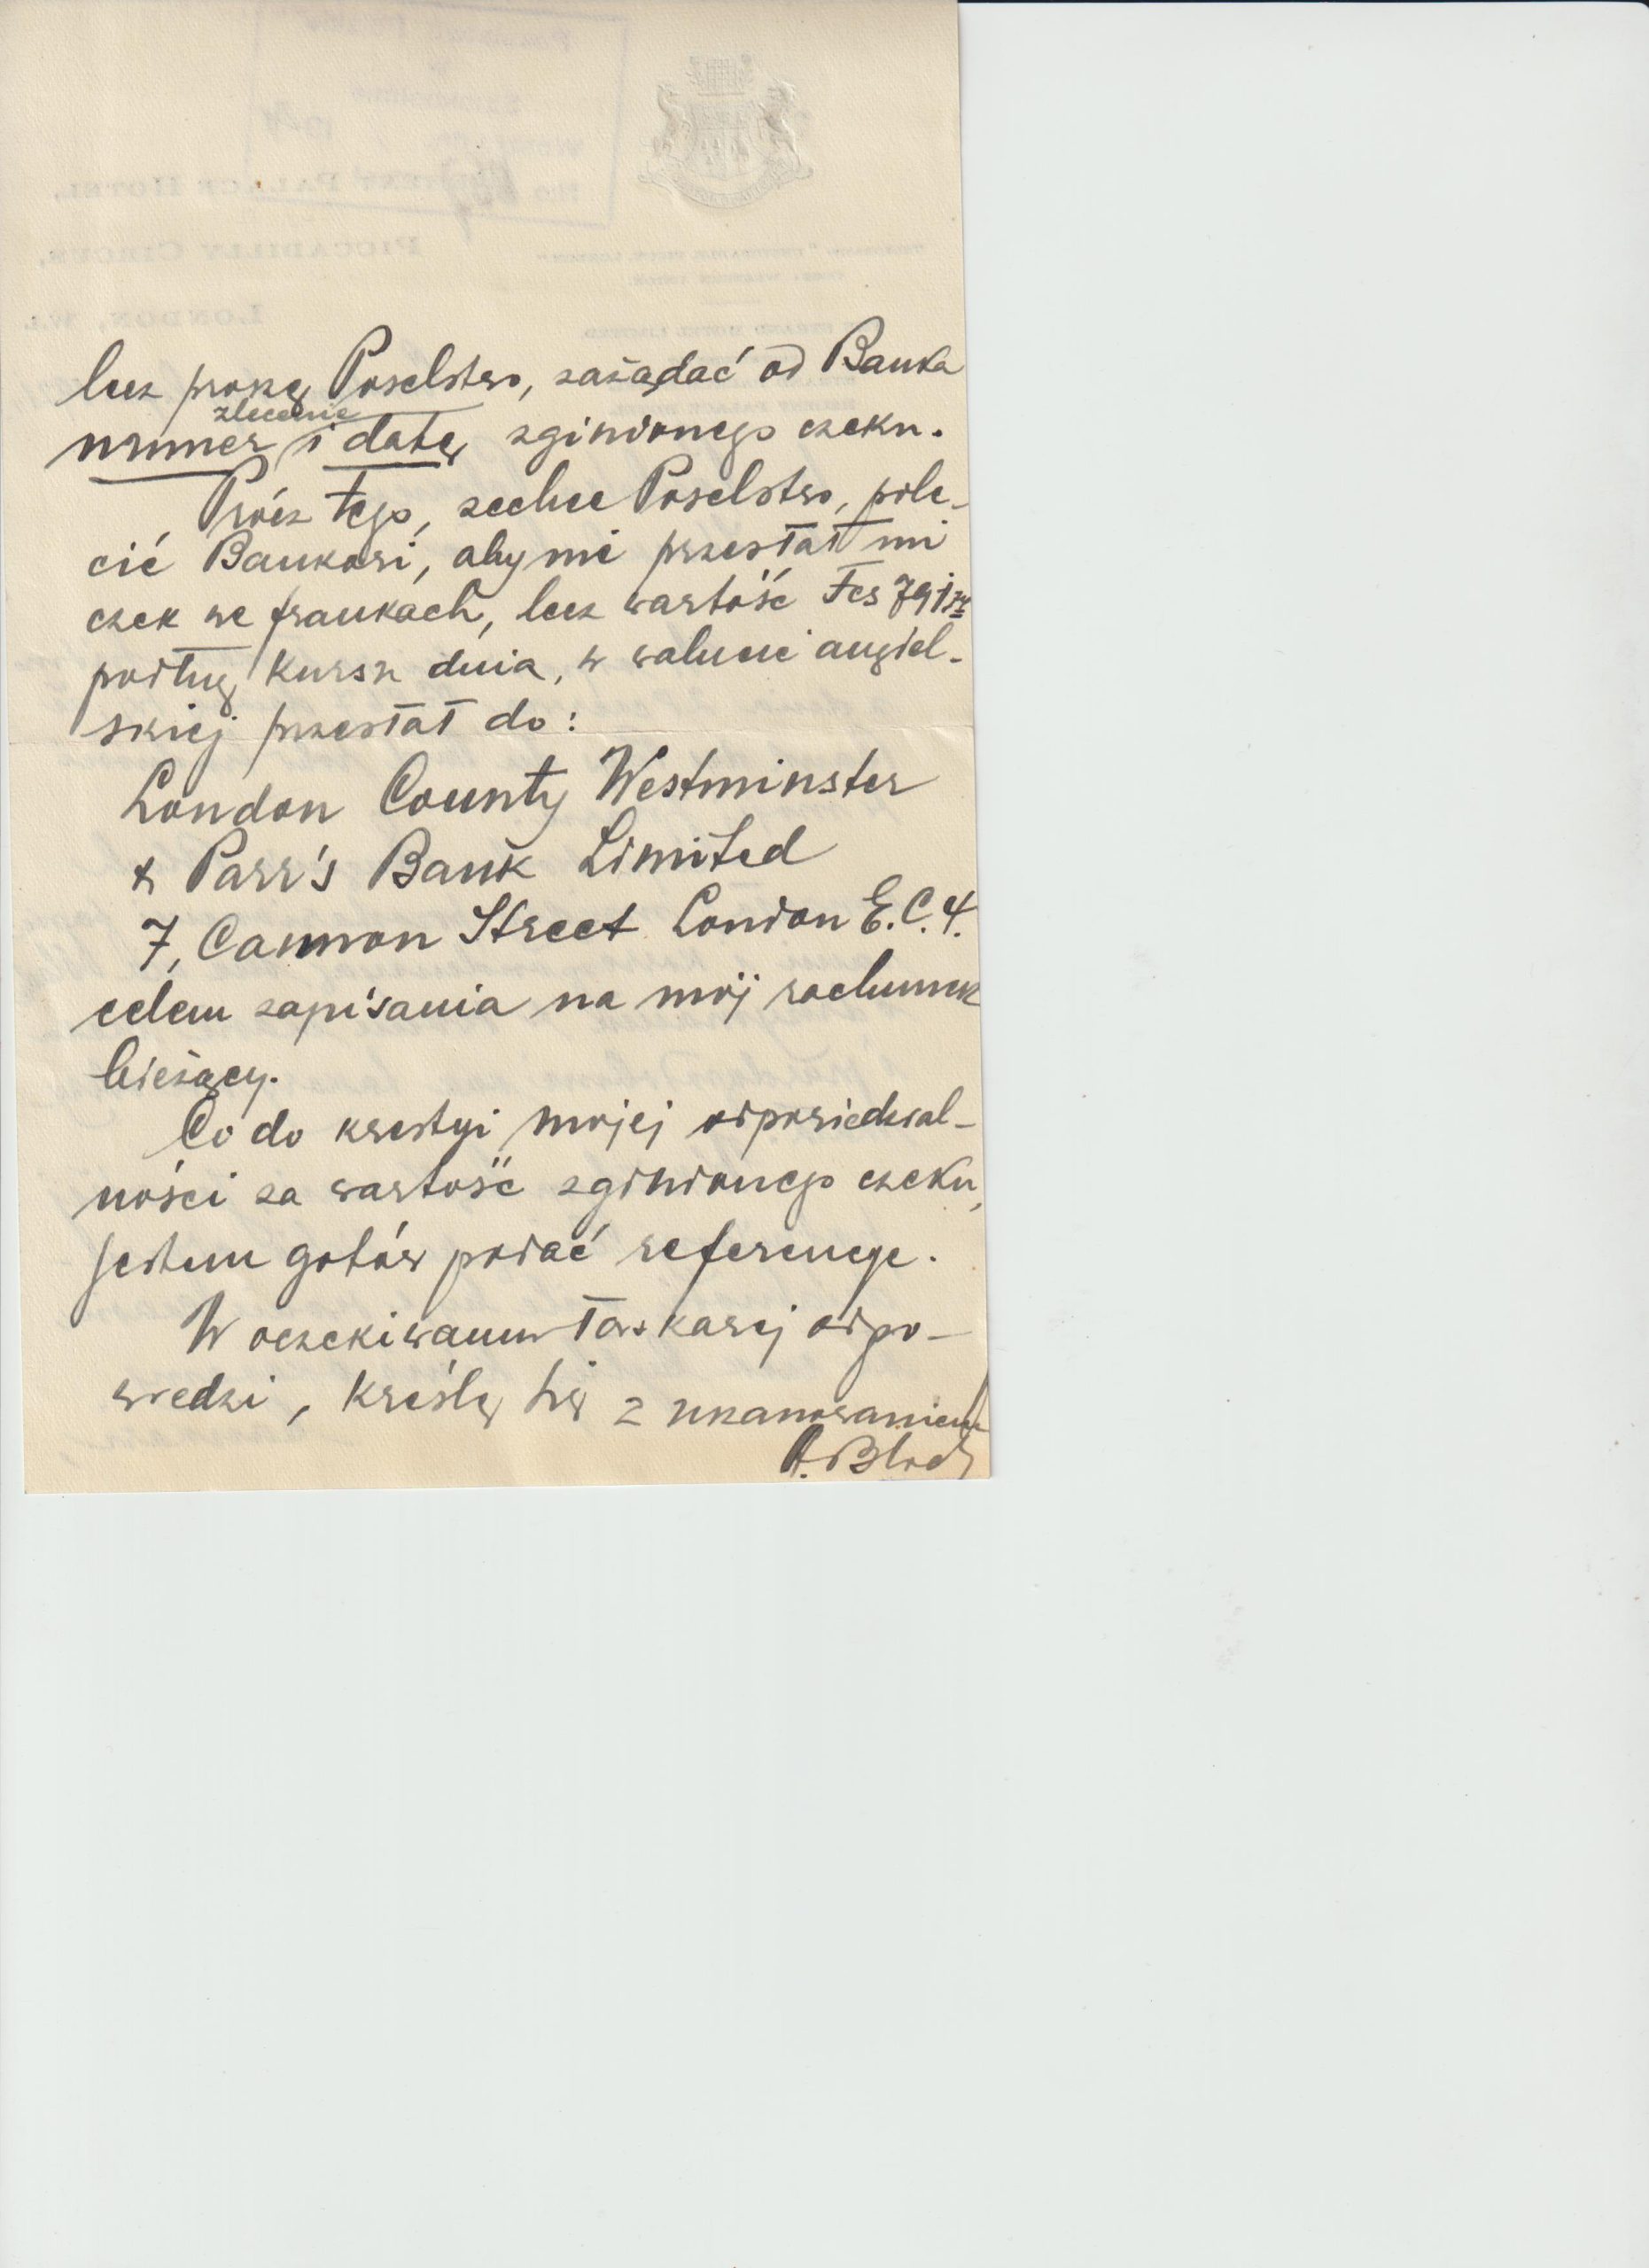 lecz proszę Poselstwo, zażądać od Banka
zlecenie
numer i datę zginionego czeku.
Prócz tego, zechce Poselstwo, pole-
cić Bankowi, aby nie przesłał mi
czek we frankach, lecz wartość Fcs
podług kursu dnia, w walucie angiel-
skiej przesłał do:
London County Westminster
& Parr's Bank Limited
7, Cannon Street London E.C.4.
celem zapisania na mój rachunek
bieżący.
Co do kwestyi mojej odpowiedzial-
ności za wartość zginionego czeku,
jestem gotów podać referencye.
W oczekiwaniu łaskawej odpo-
wiedzi, kreślę się z uszanowaniem